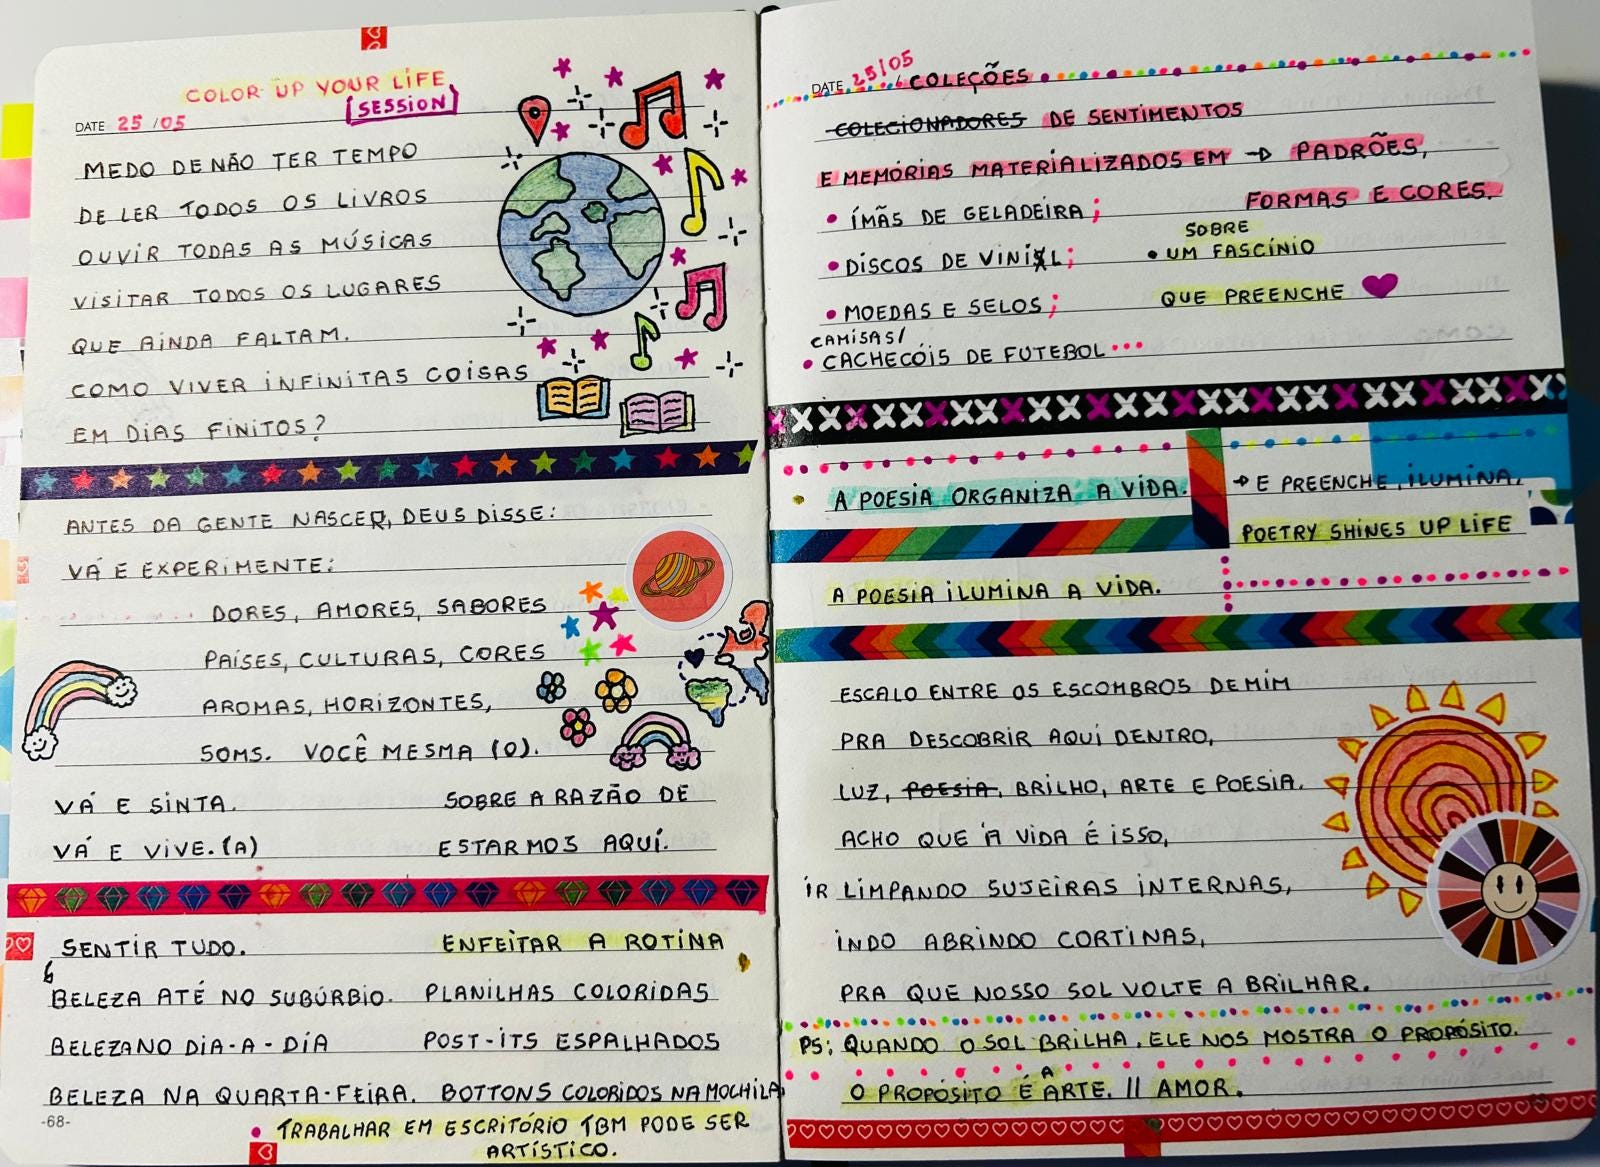 COLOR UP YOUR LIFE
[SESSION]
DATE 25 /05
MEDO DE NÃO TER TEMPO
DE LER TODOS OS LIVROS
OUVIR TODAS AS MÚSICAS
VISITAR TODOS OS LUGARES
QUE AINDA FALTAM.
COMO VIVER INFINITAS COISAS
EM DIAS FINITOS?
ANTES DA GENTE NASCER, DEUS DISSE:
VÁ E EXPERIMENTE:
DORES, AMORES, SABORES
PAÍSES, CULTURAS, CORES
AROMAS, HORIZONTES,
SONS. VOCÊ MESMA (O).
VÁ E SINTA.
VÁ E VIVE.(A)
SOBRE A RAZÃO DE
ESTARMOS AQUI.
SENTIR TUDO.
BELEZA ATÉ NO SUBÚRBIO.
BELEZA NO DIA-A-DIA
BELEZA NA QUARTA-FEIRA.
ENFEITAR A ROTINA
PLANILHAS COLORIDAS
POST-ITS ESPALHADOS
BOTTONS COLORIDOS NA MOCHILA
-68-
• TRABALHAR EM ESCRITÓRIO TBM PODE SER
ARTÍSTICO.
DATE 25/05 / COLEÇÕES
COLECIONADORES DE SENTIMENTOS
E MEMÓRIAS MATERIALIZADOS EM → PADRÕES,
FORMAS E CORES.
• ÍMÃS DE GELADEIRA;
• DISCOS DE VINIL;
• MOEDAS E SELOS;
CAMISAS/
• CACHECÓIS DE FUTEBOL...
SOBRE
• UM FASCÍNIO
QUE PREENCHE
A POESIA ORGANIZA A VIDA.
→ E PREENCHE, ILUMINA.
POETRY SHINES UP LIFE
A POESIA ILUMINA A VIDA.
ESCALO ENTRE OS ESCOMBROS DE MIM
PRA DESCOBRIR AQUI DENTRO,
LUZ, POESIA, BRILHO, ARTE E POESIA.
ACHO QUE A VIDA É ISSO,
IR LIMPANDO SUJEIRAS INTERNAS,
INDO ABRINDO CORTINAS,
PRA QUE NOSSO SOL VOLTE A BRILHAR.
PS: QUANDO O SOL BRILHA, ELE NOS MOSTRA O PROPÓSITO.
O PROPÓSITO É A ARTE. || AMOR.